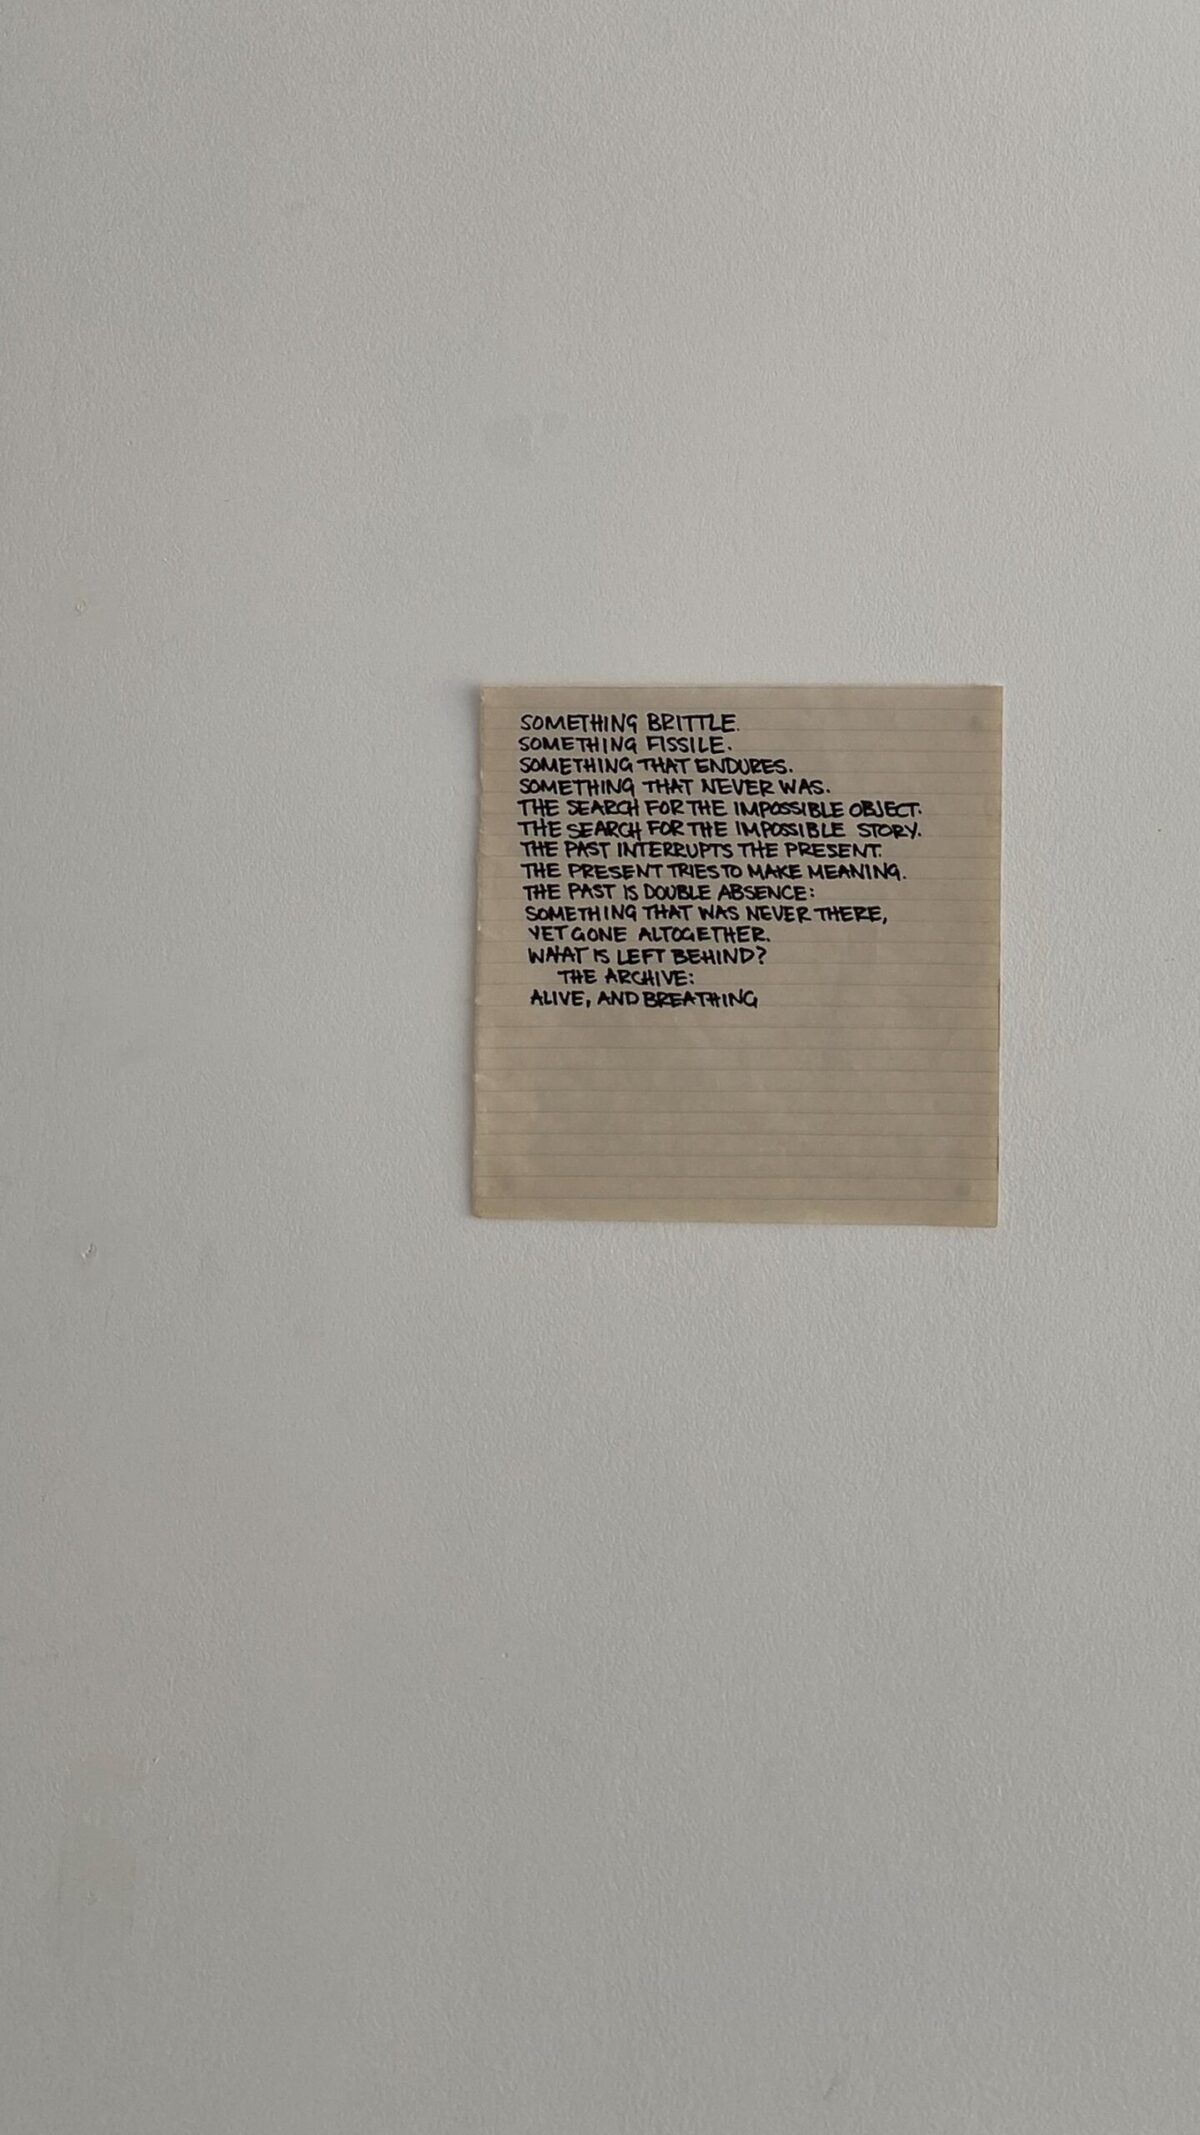 SOMETHING BRITTLE.
SOMETHING FISSILE.
SOMETHING THAT ENDURES.
SOMETHING THAT NEVER WAS.
THE SEARCH FOR THE IMPOSSIBLE OBJECT.
THE SEARCH FOR THE IMPOSSIBLE STORY.
THE PAST INTERRUPTS THE PRESENT.
THE PRESENT TRIES TO MAKE MEANING.
THE PAST IS DOUBLE ABSENCE:
SOMETHING THAT WAS NEVER THERE,
YET GONE ALTOGETHER.
WHAT IS LEFT BEHIND?
THE ARCHIVE:
ALIVE, AND BREATHING